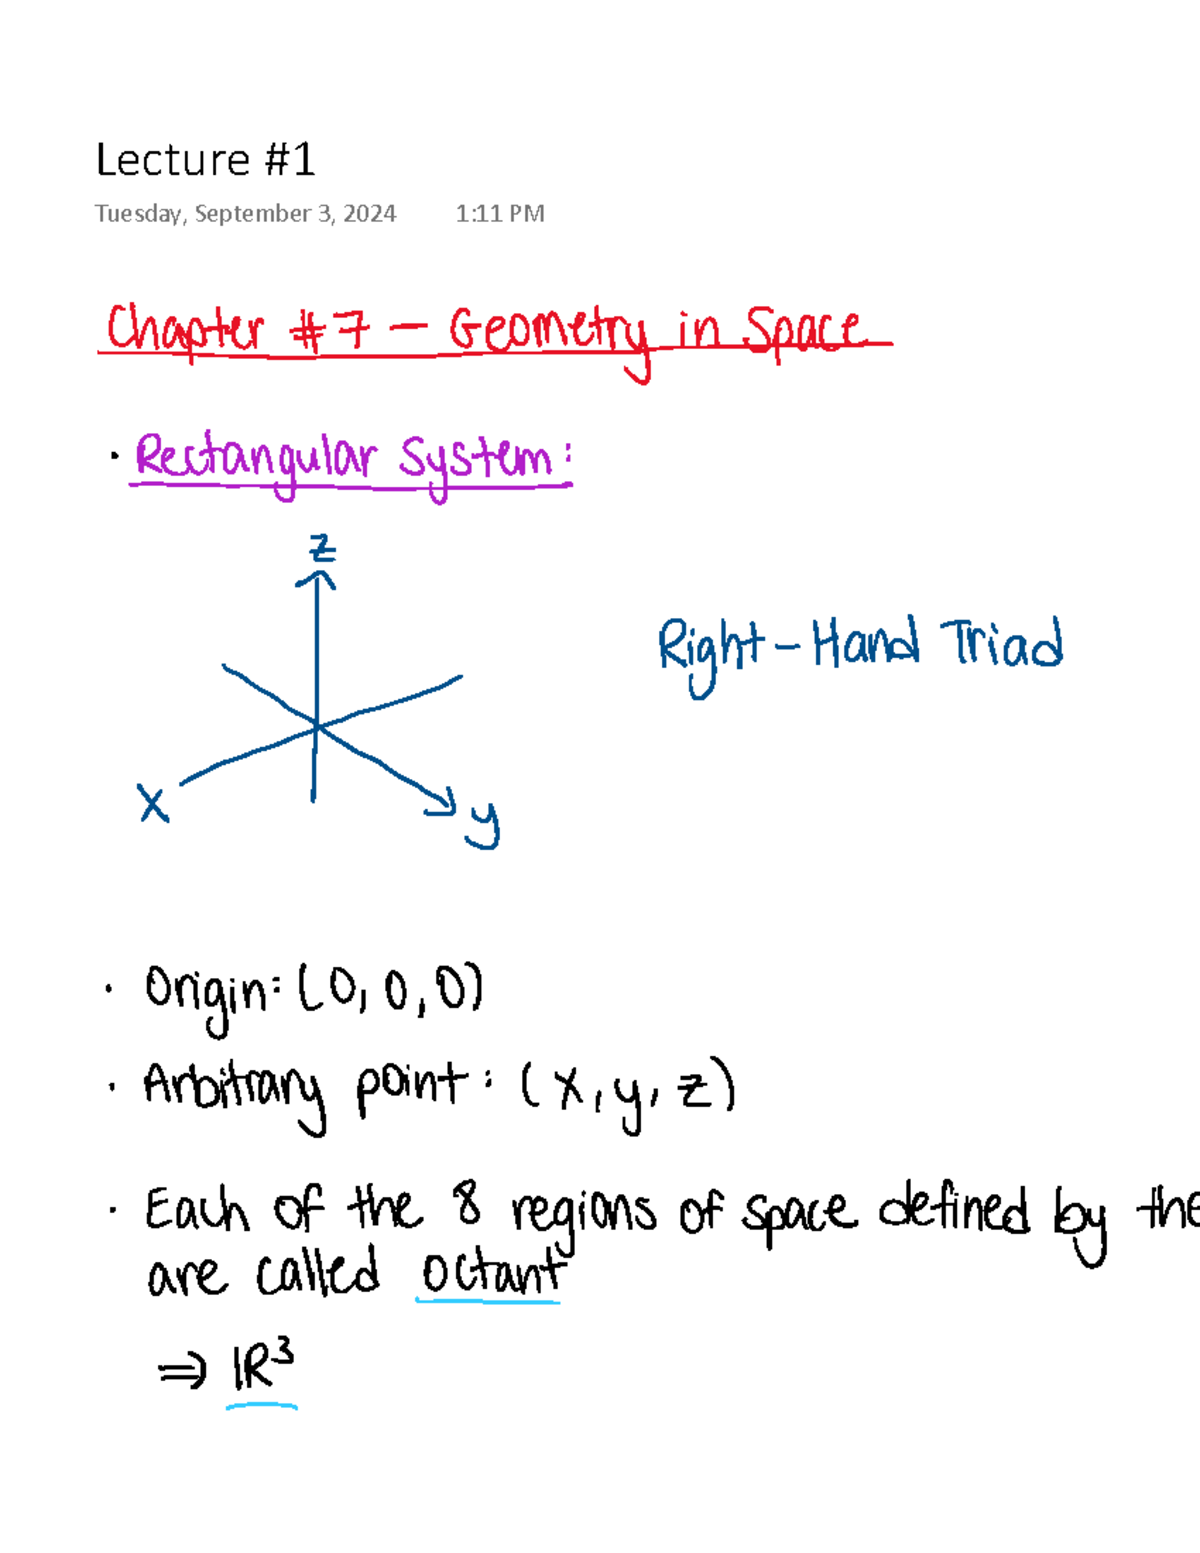 Lecture #1
Tuesday, September 3, 2024 1:11 PM
Chapter #7 – Geometry in Space
· Rectangular System:
z
Right-Hand Triad
x
y
· Origin: (0, 0, 0)
· Arbitrary point: (x, y, z)
· Each of the 8 regions of space defined by the
are called octant
⇒ ℝ³